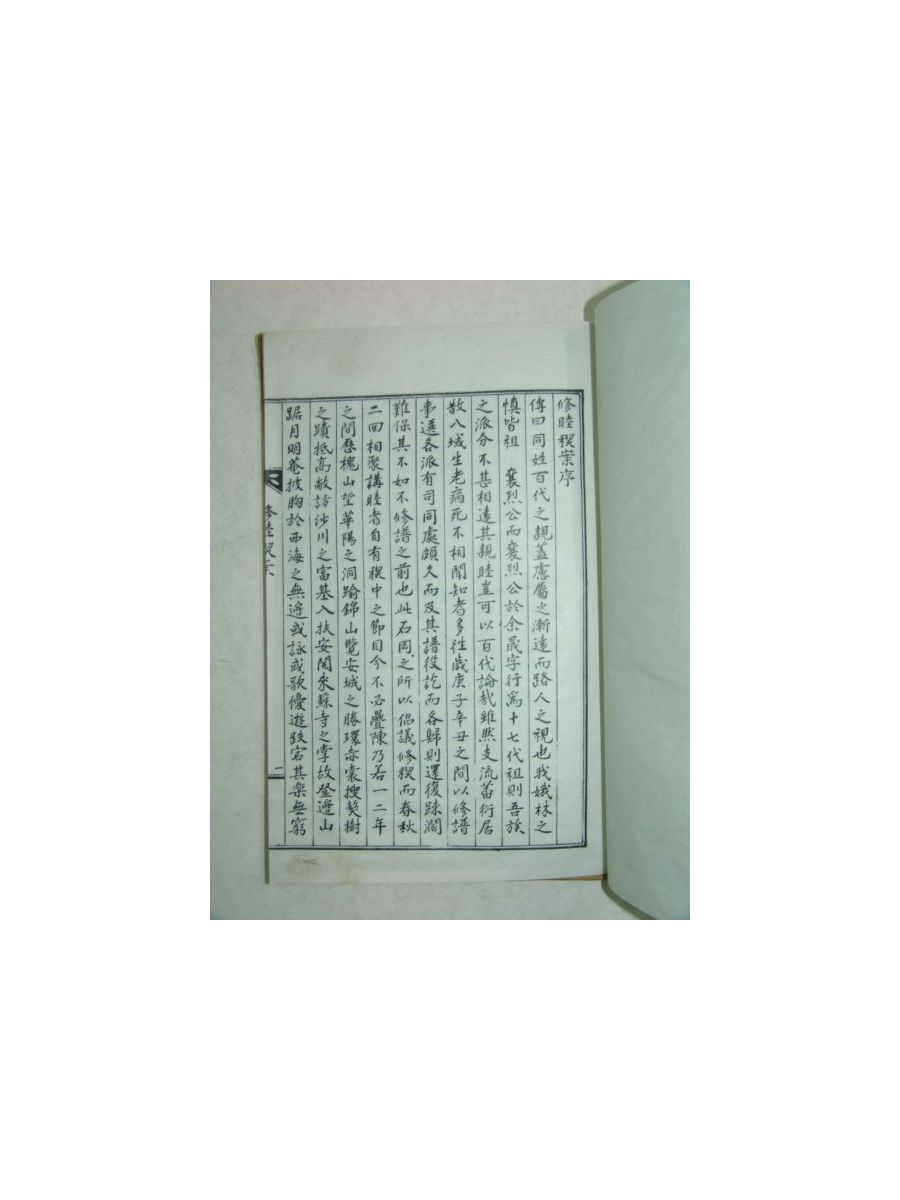 修睦稧案序
傳曰同姓百代之親蓋慮屬之漸遠而路人之視也我娥林之
愼皆祖 襄烈公而襄烈公於余晟字行爲十七代祖則吾族
之派分不甚相遠其親睦豈可以百代論哉雖然支流蕃衍居
散八域生老病死不相聞知者多往歲庚子辛丑之間以修譜
事選各派有司同處頗久而及其譜役訖而各歸則還復踈濶
難保其不如不修譜之前也此石岡之所以倡議修稧而春秋
二回相聚講睦者自有稧中之節目今不必疊陳乃若一二年
之間歷槐山望華陽之洞踰錦山覽安城之勝環赤裳搜獒樹
之蹟抵高敞訪沙川之富基入扶安閱來蘇寺之掌故登邊山
踞月明菴披胸於西海之無邊或詠或歌優遊跌宕其樂無窮
修睦稧
一